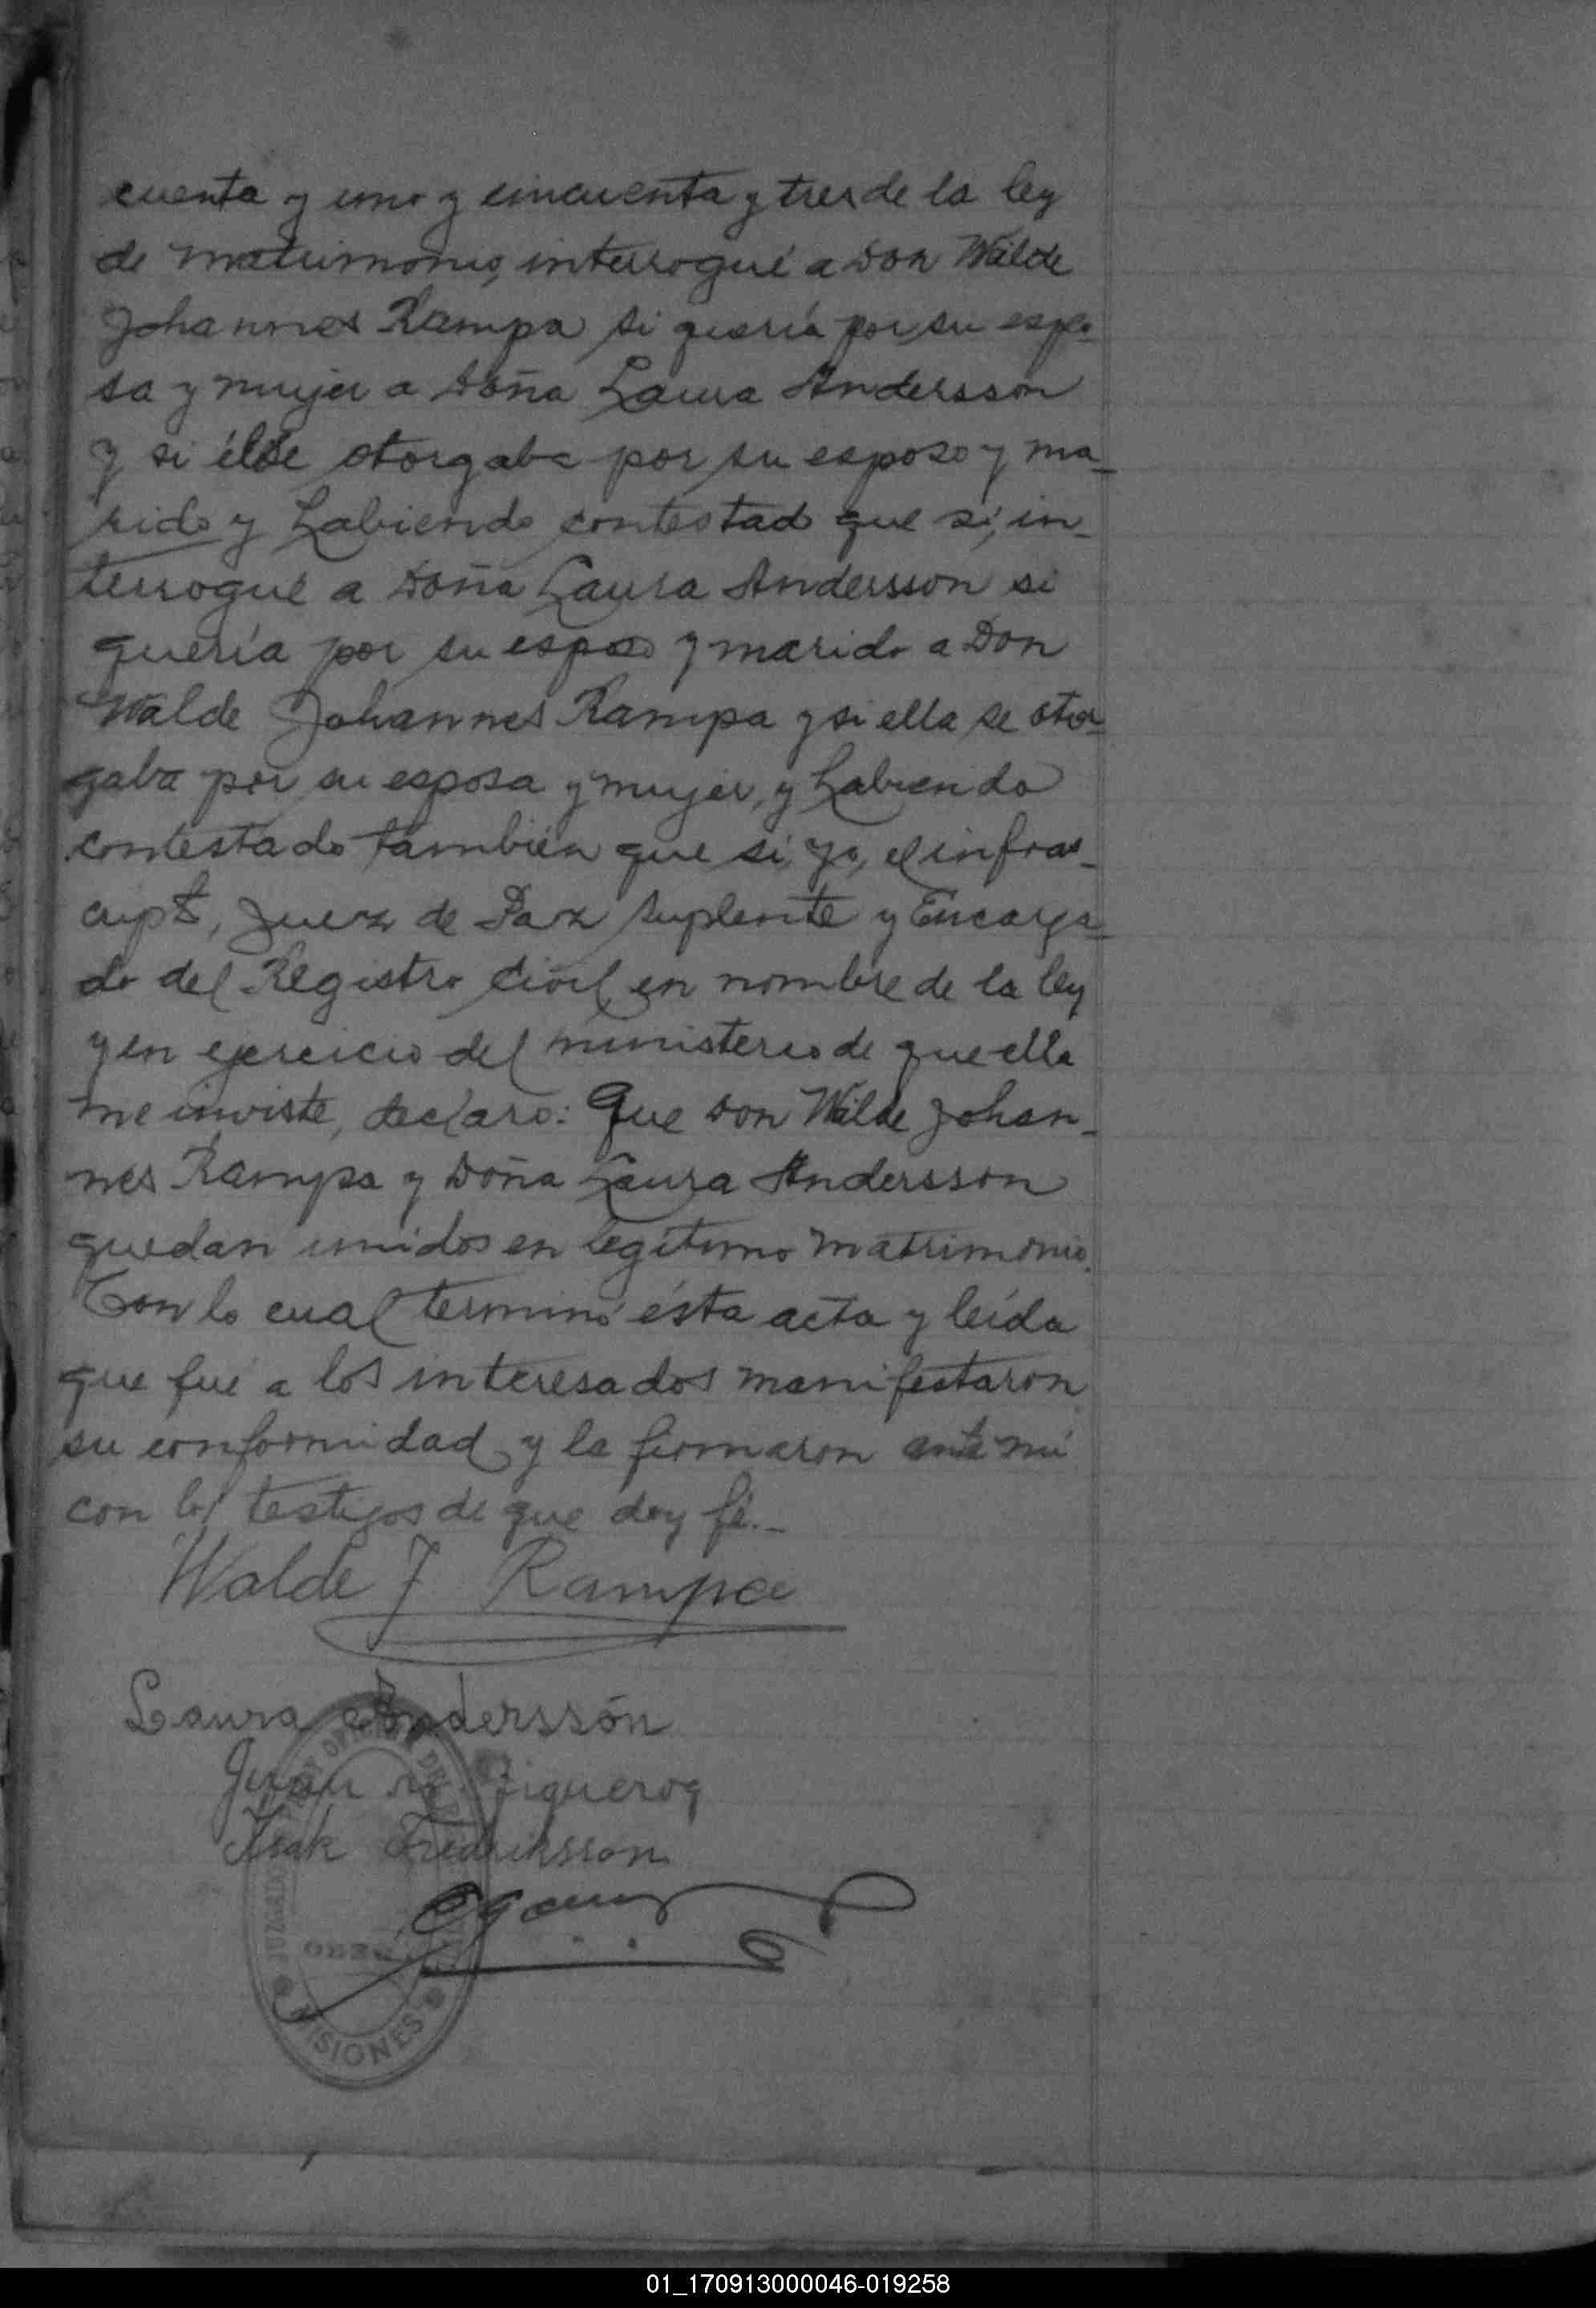 cuenta y uno y cincuenta y tres de la ley
de matrimonio, interrogué a Don Walde
Johannes Rampa si quería por su espo-
sa y mujer a Doña Laura Andersson
y si él se otorgaba por su esposo y ma-
rido y habiendo contestado que si, in-
terrogué a Doña Laura Andersson si
quería por su esposo y marido a Don
Walde Johannes Rampa y si ella se otor-
gaba por su esposa y mujer, y habiendo
contestado también que si, yo, el infras-
cripto, Juez de Paz Suplente y Encarga-
do del Registro Civil en nombre de la ley
y en ejercicio del ministerio de que ella
me inviste, declaro: Que Don Walde Johan-
nes Rampa y Doña Laura Andersson
quedan unidos en legítimo matrimonio.
Con lo cual terminó ésta acta y leída
que fué a los interesados manifestaron
su conformidad y la firmaron ante mí
con los testigos de que doy fé.-
Walde J Rampa
Laura Anderssón
Juan Figueroa
Isak Fredriksson
JUZGADO DE PAZ Y OFICINA DEL
MISIONES
01_170913000046-019258